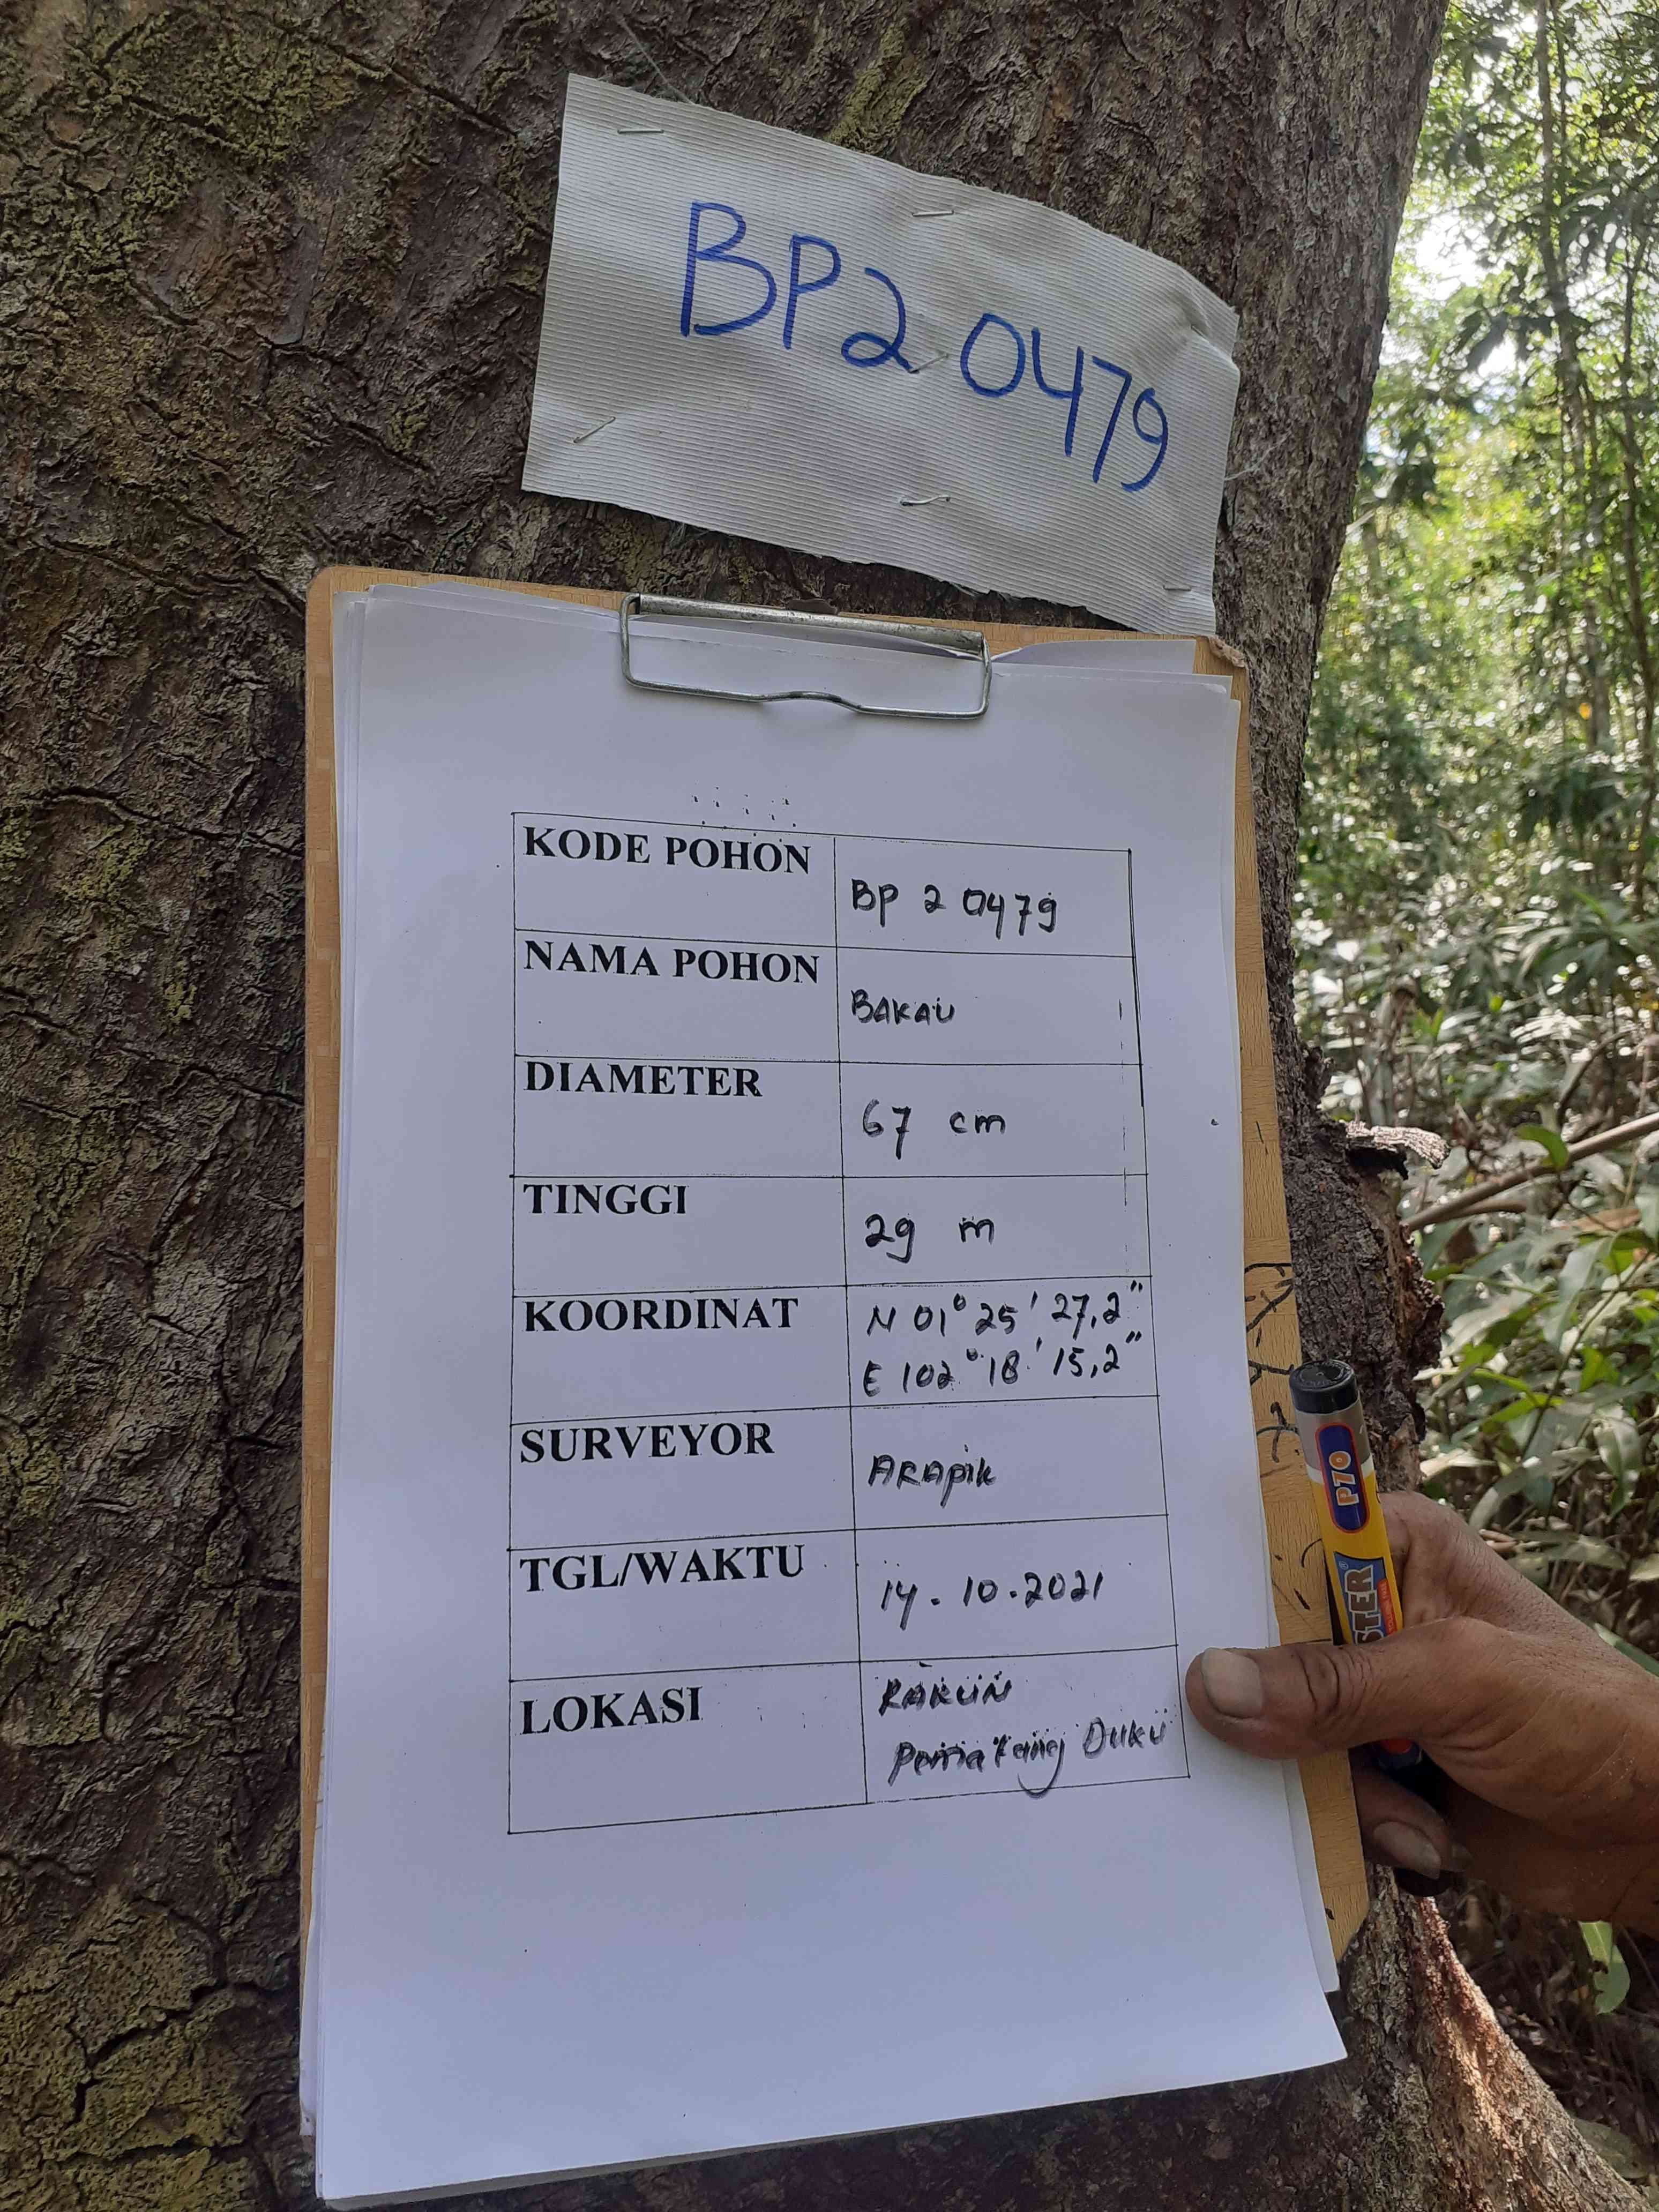 BP2 0479
KODE POHON
BP 2 0479
NAMA POHON
BAKAU
DIAMETER
67 cm
TINGGI
29 m
KOORDINAT
N 01° 25' 27,2"
E 102° 18' 15,2"
SURVEYOR
ARApik
TGL/WAKTU
14-10-2021
LOKASI
Pematang Duku
PZO
STER